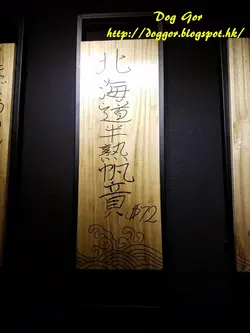 Dog Gor
http://doggor.blogspot.hk/
北海道半熟帆音貝
$72